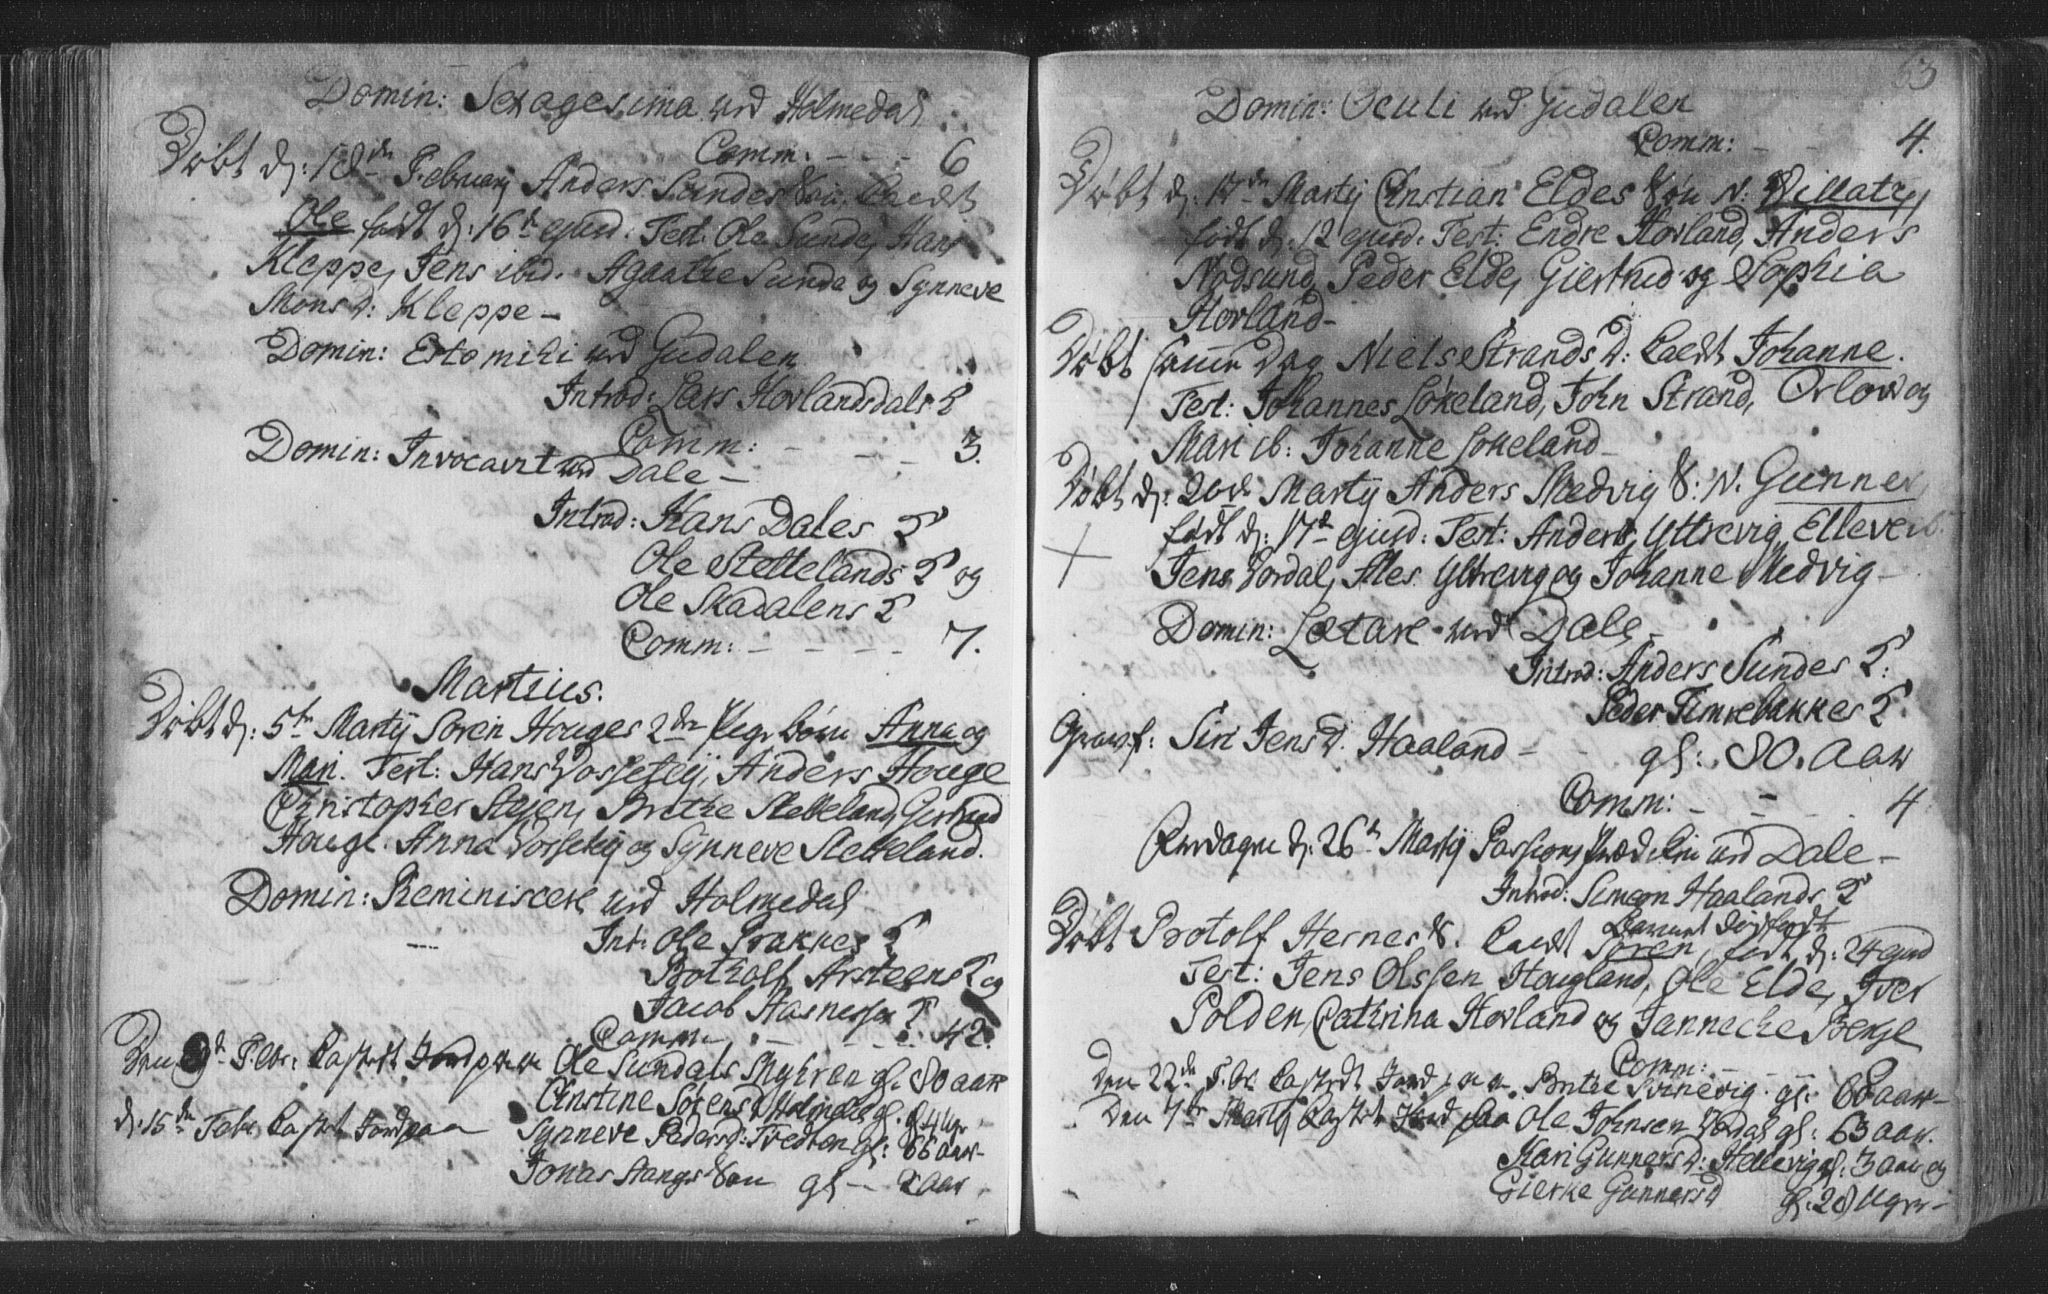 Domin: Sexagesima ved Holmedal
Comm: - - - 6
Døbt d: 18de Februarij Anders Sundes Søn, kaldt
Ole født d: 16de ejusd. Test. Ole Sunde, Hans
Kleppe, Jens ibid. Agaathe Sunde og Synneve
Mons d: Kleppe -
Domin: Estomihi ved Gudalen
Introd: Lars Hovlandsdals
Comm: - - - 3.
Domin: Invocavit ved Dale -
Introd: Hans Dales
Ole Stettelands og
Ole Skadalens
Comm: - - - - 7.
Martius.
Døbt d: 5te Martij Soren Houges 2de børn Anna og
Mari. Test: Hans, Anders Houge
Christopher Steien, Brethe Stetteland, Giertrud
Houge. Anna og Synneve Stetteland.
Domin: Reminiscere ved Holmedal
Int: Ole
Botholf Arsteens og
Jacob
Comm: - - - 42.
Den Febr: kastet Jord paa Ole Sundals Myhren gl. 80 aar
Christine Sørens d Holmedal gl:
d: 15de Febr. kastet Jord paa Synneve Peders d: Tvedten gl: 66 aar -
Jonas Stangs Søn gl - 2 aar
63
Domin: Oculi ved Gudalen
Comm: - - 4.
Døbt d: 17de Martij Christian Eldes Søn N:
født d: 12 ejusd. Test: Endre Hovland, Anders
Nødsund, Peder Elde, Giertrud og Sophia
Hovland -
Døbt samme Dag Niels Strands D: kaldt Johanne.
Test: Johannes Løkeland, John Strand, og
Mari ib: Johanne Løkeland -
Døbt d: 20de Martij Anders Medvig S: N. Gunner
født d: 17de ejusd: Test: Anders Yttrevig, Elleve ib.
Jens, Yttrevig og Johanne Medvig -
Domin: Lætare ved Dale -
Introd: Anders Sundes
Peder
Siri Jens d. Haaland - - gl: 80. Aar
Comm: - - 4
d: 26de Martij Passions Prædiken ved Dale -
Introd: Simeon Haalands
Barnet
Døbt Botolf Hernes S. kaldt Søren, født d: 24 ejusd
Test: Jens Olssen Hougland, Ole Elde, Iver
Polden, Cathrina Hovland og Jannecke
Comm: - -
Den 22de Febr kastet Jord paa Brithe Svinevig gl: aar -
Den 7de Martij kastet Jord paa Ole Johnsen gl: 63 aar.
Mari Gunners d: gl. 3 aar og
Gierke Gunnersd gl. 28 Uger -